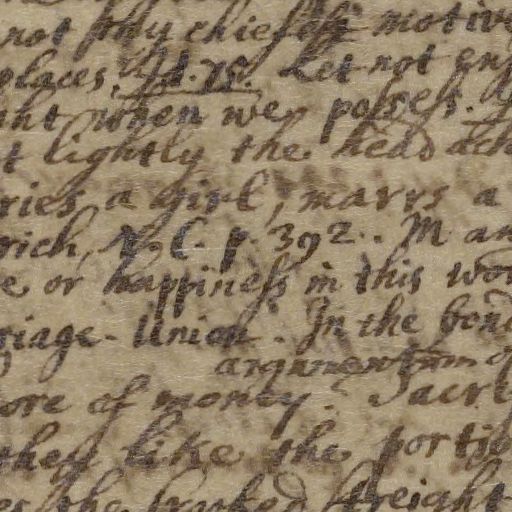 not my chiefest motive
places, Id. 75. Let not enj
ht when we possess.
t lightly the head ach
ries a girl, marrs a
rich, N. C. p. 392.. M. an
e or happiness in this wor
riage-Union. In the bond
argumentum
ore of money. Sacr
they like the portio
the crooked streight